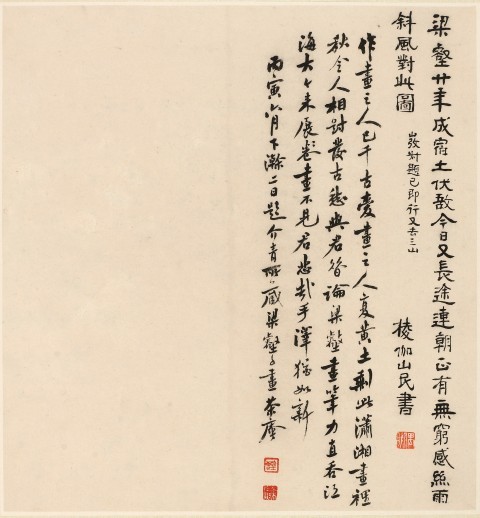 梁壑廿年成宿土伏敔今日又長途連朝正有無窮感絲雨
斜風對此圖
對題已即行又去三山
棱伽山民書
作畫之人已千古愛畫之人復黃土剩此瀟湘畫裡
秋令人相對發古愁與君昔論梁壑畫筆力直吞江
海大今來展卷畫不見君悲哉手澤猶如新
丙寅六月下澣二日題介青所藏梁壑子畫茶庵